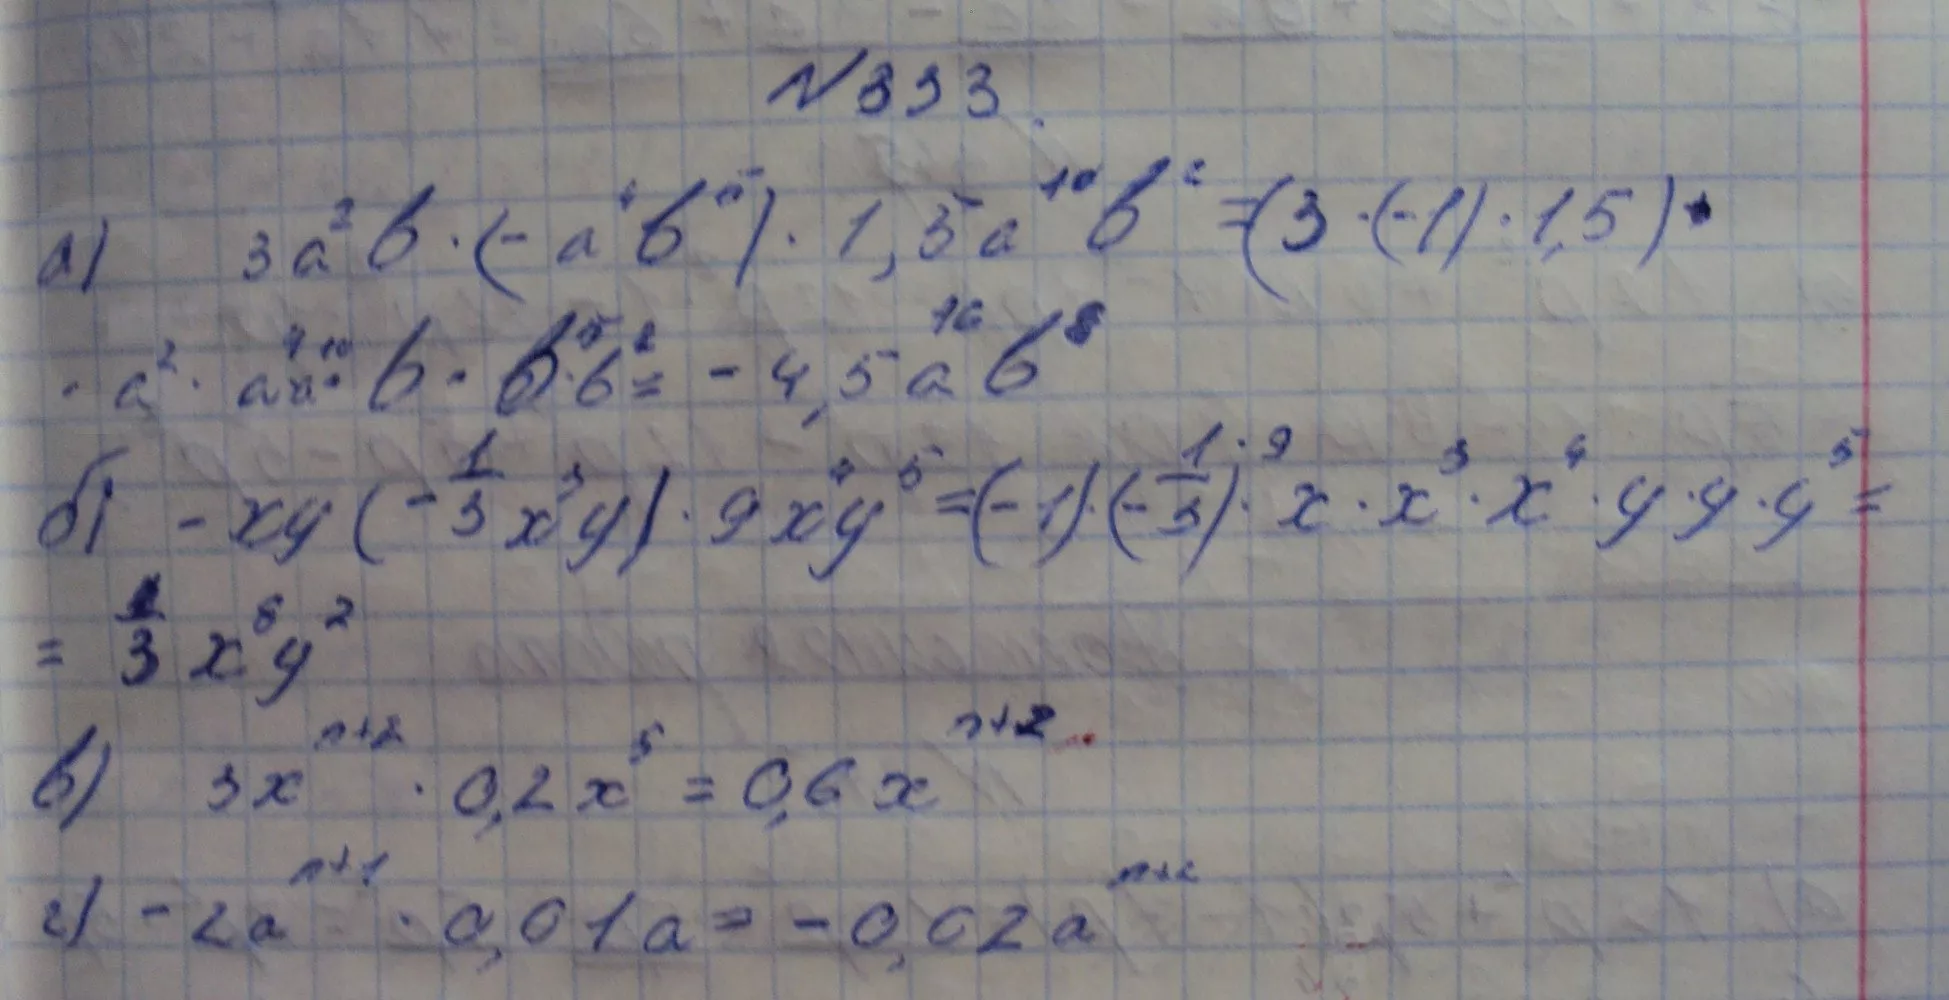 №333.
а) 3a²b · (-a⁴b⁵) · 1,5a¹⁰b² = (3 · (-1) · 1,5) ·
· a² · a⁴a¹⁰ · b · b⁵ · b² = -4,5a¹⁶b⁸
б) -xy (-1/3x³y) · 9x⁴y⁵ = (-1) · (-1/3) · 9 · x · x³ · x⁴ · y · y · y⁵ =
= 1/3 x⁸y²
в) 3xⁿ⁺² · 0,2x⁵ = 0,6xⁿ⁺²
г) -2aⁿ⁺¹ · 0,01a = -0,02aⁿ⁺²